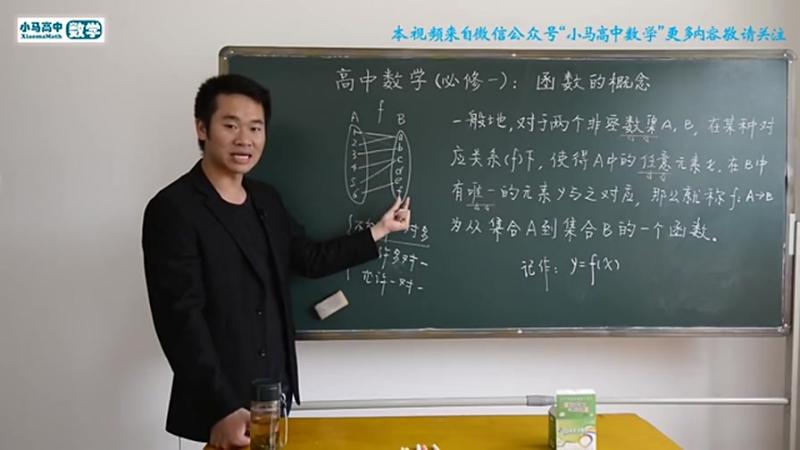 小马高中 数学
XiaomaMath
本视频来自微信公众号“小马高中数学”更多内容敬请关注
高中数学(必修一)：函数的概念
f
A B
1 a
2 b
3 c
4 d
5 e
6 f
一般地，对于两个非空数集A，B，在某种对
应关系(f)下，使得A中的任意元素x，在B中
有唯一的元素y与之对应，那么就称f：A→B
为从集合A到集合B的一个函数。
记作：y=f(x)
对多
许多对一
允许一对一